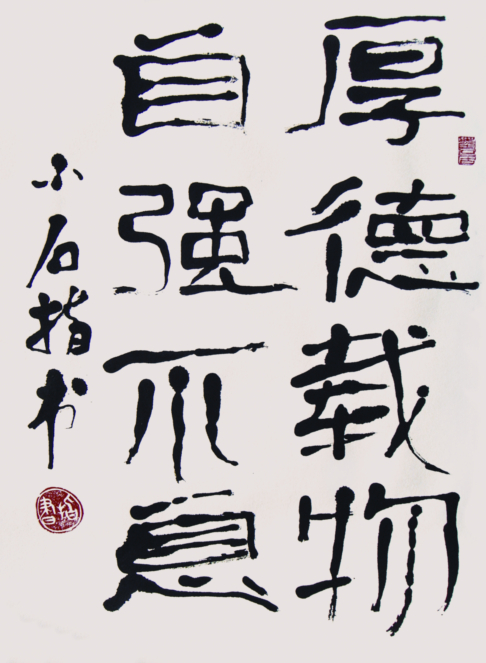 厚德载物
自强不息
小石指书